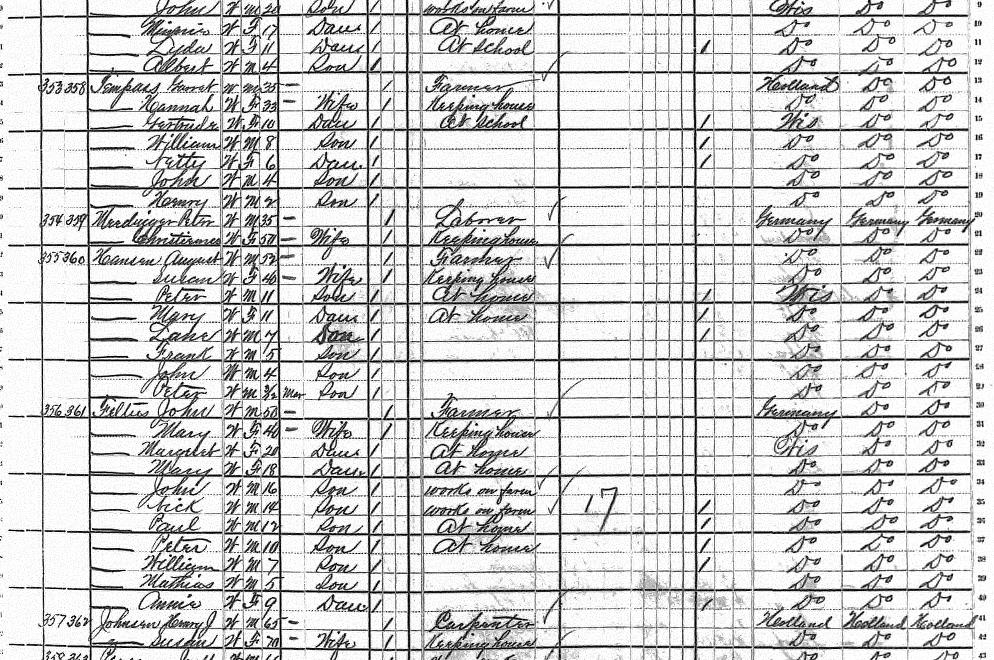 John W M 20 Son / works on farm Wis Do Do 9
Minnie W F 17 Dau / At home Do Do Do 10
Lyda W F 11 Dau / At School / Do Do Do 11
Albert W M 4 Son / Do Do Do 12
353 358 W M 35 / Farmer Holland Do Do 13
Hannah W F 33 Wife / Keeping house Do Do Do 14
W F 10 Dau / At School / Wis Do Do 15
William W M 8 Son / / Do Do Do 16
Netty W F 6 Dau / / Do Do Do 17
John W M 4 Son / Do Do Do 18
Henry W M 2 Son / Do Do Do 19
354 359 Peter W M 35 / Laborer Germany Germany Germany 20
W F Wife / Keeping house Do Do Do 21
355 360 Hansen August W M 52 / Farmer Do Do Do 22
Susan W F 40 Wife / Keeping house Do Do Do 23
Peter W M 11 Son / At home / Wis Do Do 24
Mary W F 11 Dau / At home / Do Do Do 25
W M 7 Son / / Do Do Do 26
Frank W M 5 Son / Do Do Do 27
John W M 4 Son / Do Do Do 28
Peter W M 3/12 Mar Son / Do Do Do 29
356 361 John W M 50 / Farmer Germany Do Do 30
Mary W F 40 Wife / Keeping house Do Do Do 31
Margret W F 20 Dau / At home Wis Do Do 32
Mary W F 18 Dau / At home Do Do Do 33
John W M 16 Son / works on farm Do Do Do 34
Nick W M 14 Son / works on farm 17 / Do Do Do 35
Paul W M 12 Son / At home / Do Do Do 36
Peter W M 10 Son / At home / Do Do Do 37
William W M 7 Son / / Do Do Do 38
Mathias W M 5 Son / Do Do Do 39
Annie W F 9 Dau / / Do Do Do 40
357 362 Johnsen Henry J W M 65 / Carpenter Holland Holland Holland 41
Susan W F 70 Wife / Keeping house Do Do Do 42
358 363 43